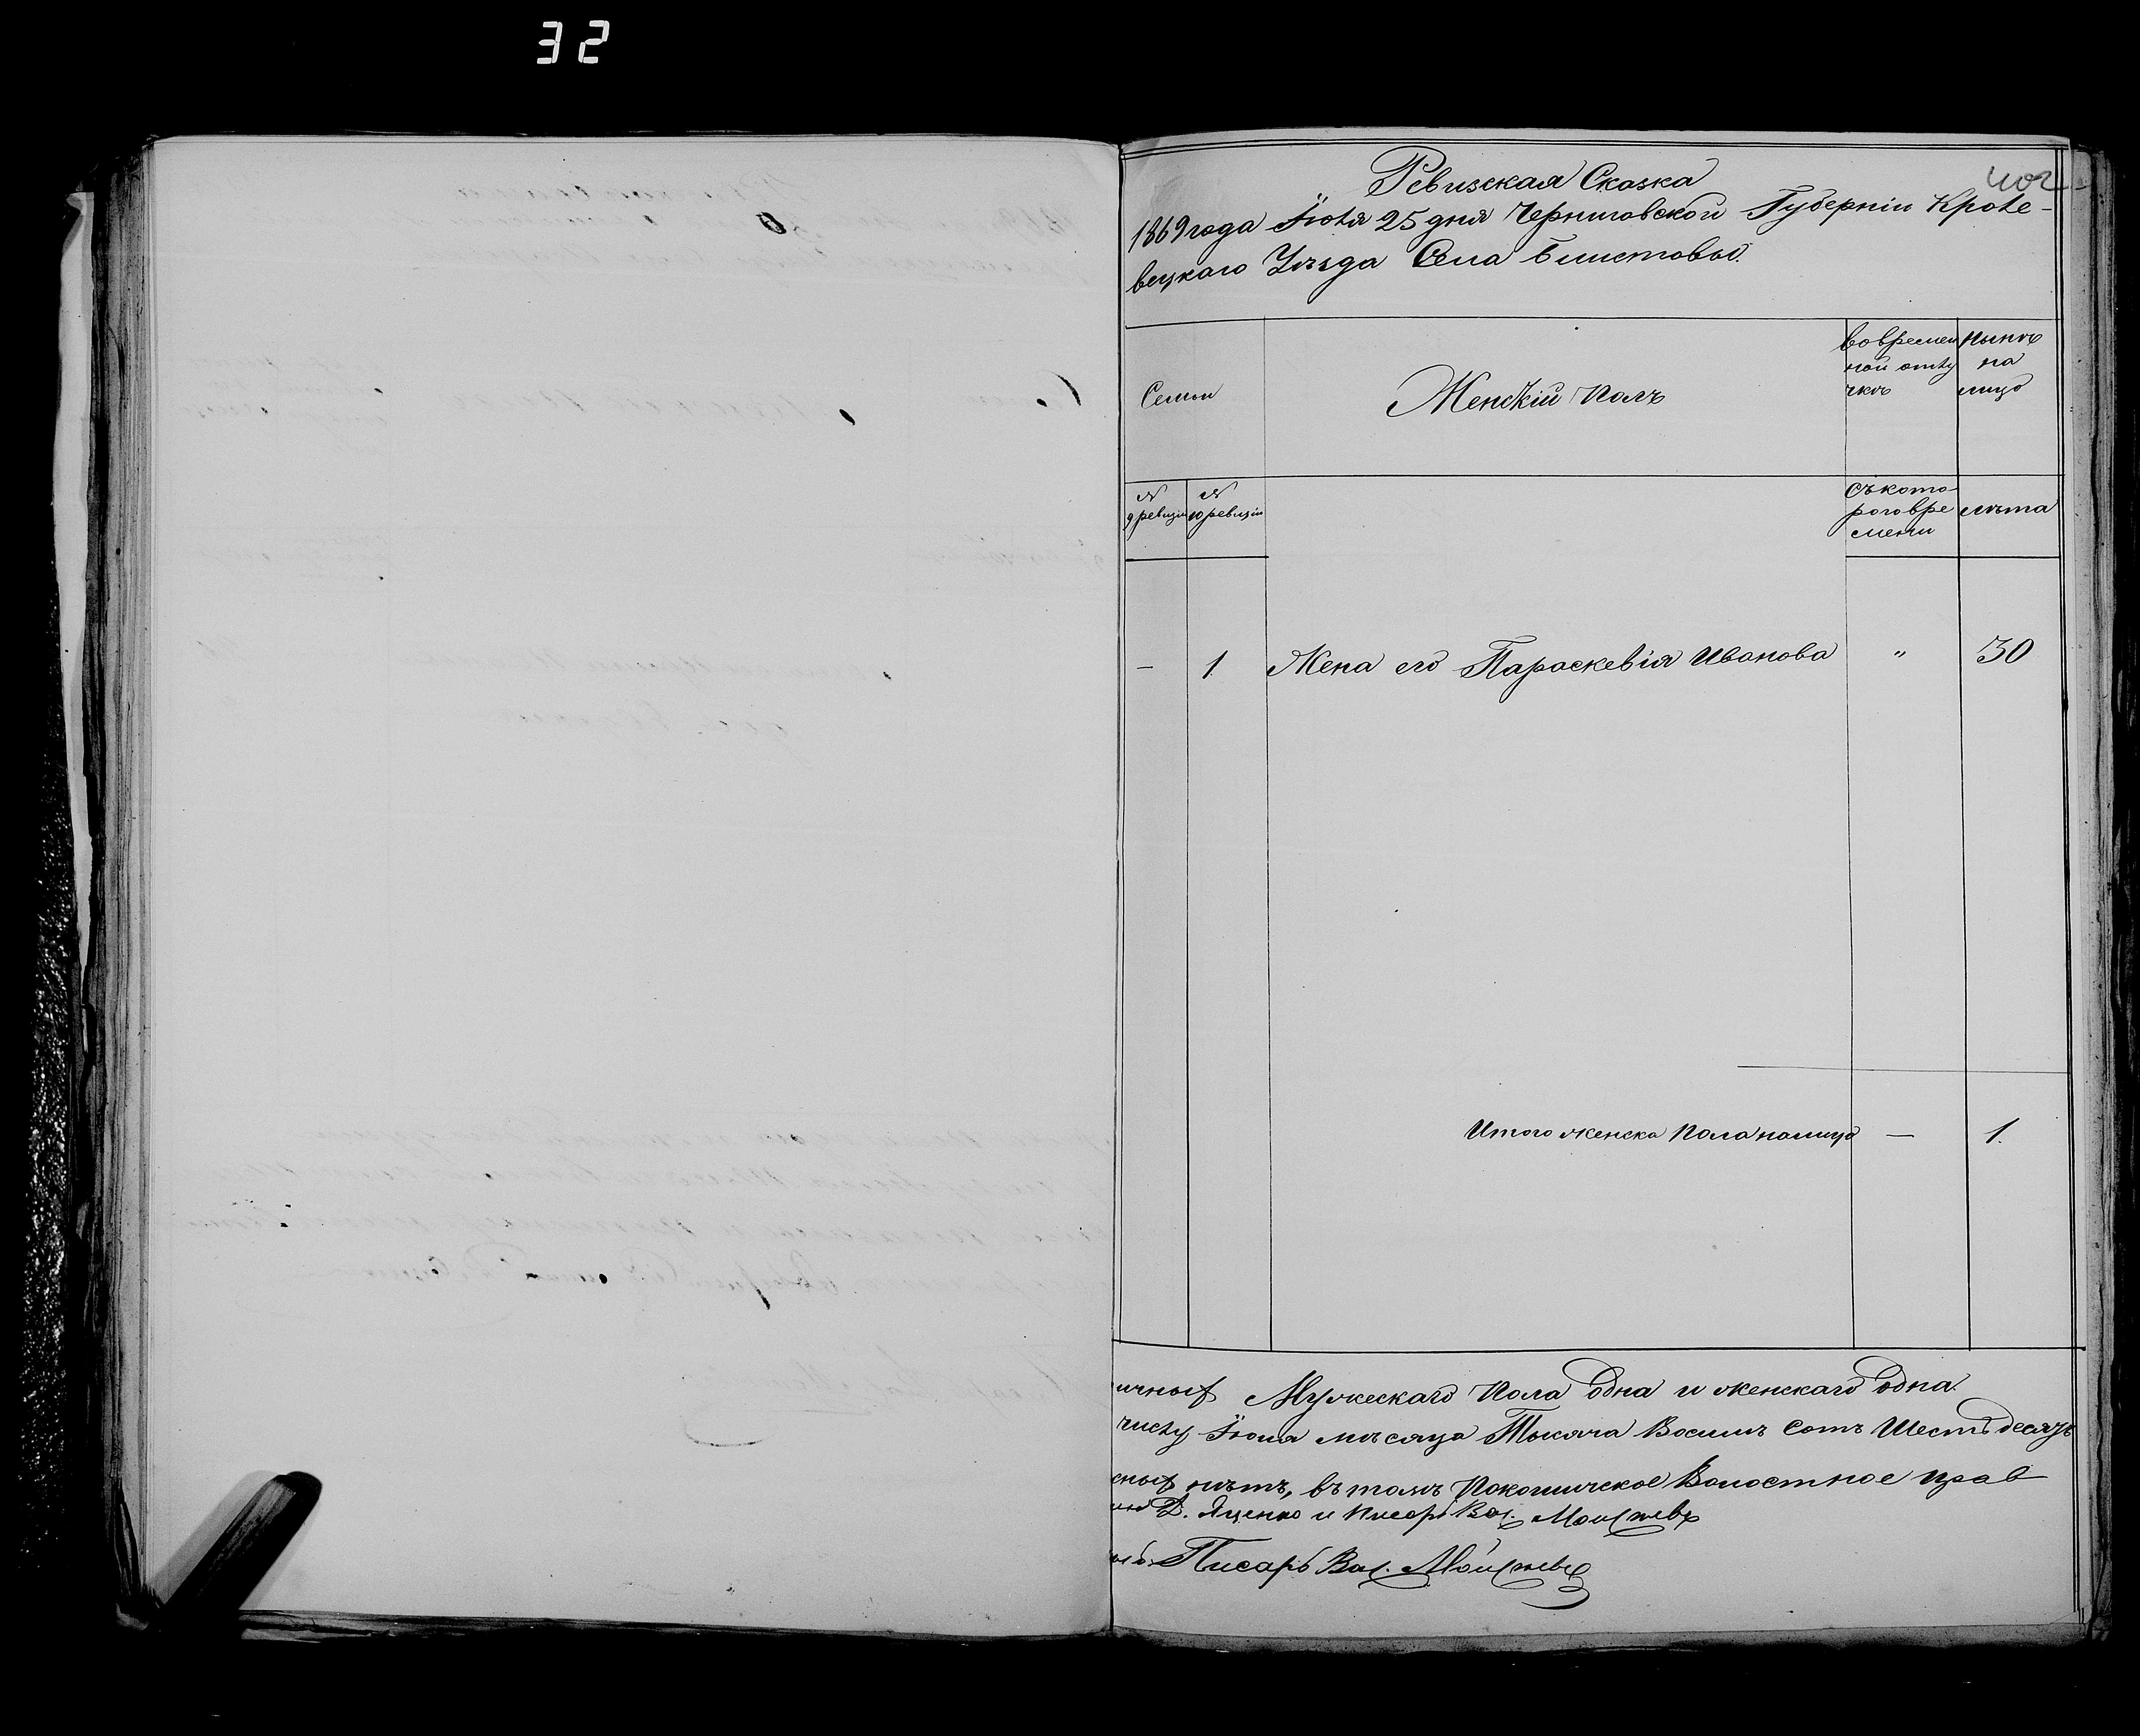 32
402
Ревизская Сказка
1869 года Іюля 25 дня Черниговской Губерніи Кроле-
вецкаго Уѣзда Села Блистовы.
Семьи
Женскій Полъ
во времен
ной отлу
чкѣ
Нынѣ
на
лицо
№
9 ревизіи
№
10 ревизіи
съ кото-
раго вре
мени
лѣта
— 1. Жена его Параскевія Иванова " 30
Итого женска Пола налицо — 1.
ичныхъ Мужескаго Пола Одна и женскаго одна.
числу Іюля мѣсяца Тысяча Восемь Сотъ Шестьдесятъ
нѣтъ, въ томъ Покошичское Волостное прав
Д. Яценко и Писарь Вас.
Писарь Вас.